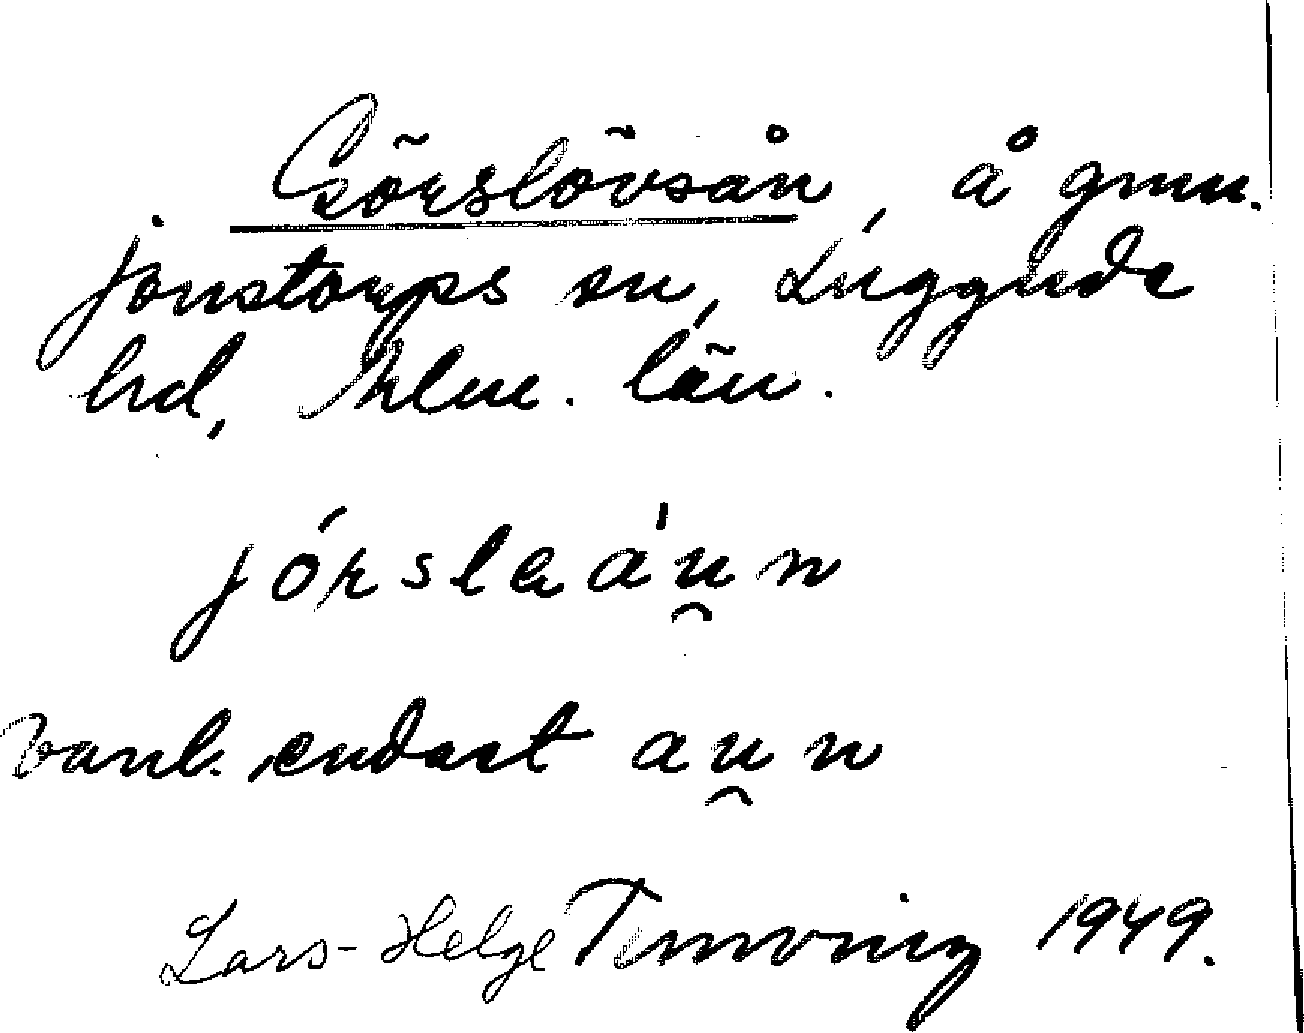 Görslövsån, å gmu.
Jonstorps sn, Luggude
hd, Mlm. län.
jórslaáu̯n
vanl. endast au̯n
Lars-Helge 1949.